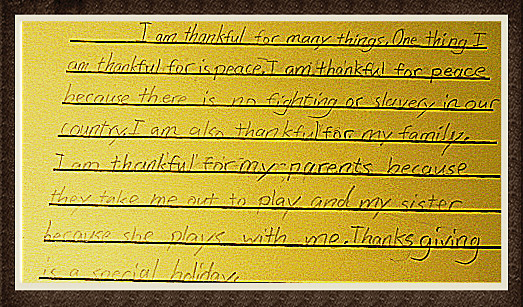 I am thankful for many things. One thing I
am thankful for is peace. I am thankful for peace
because there is no fighting or slavery in our
country. I am also thankful for my family.
I am thankful for my parents because
they take me out to play and my sister
because she plays with me. Thanksgiving
is a special holiday.